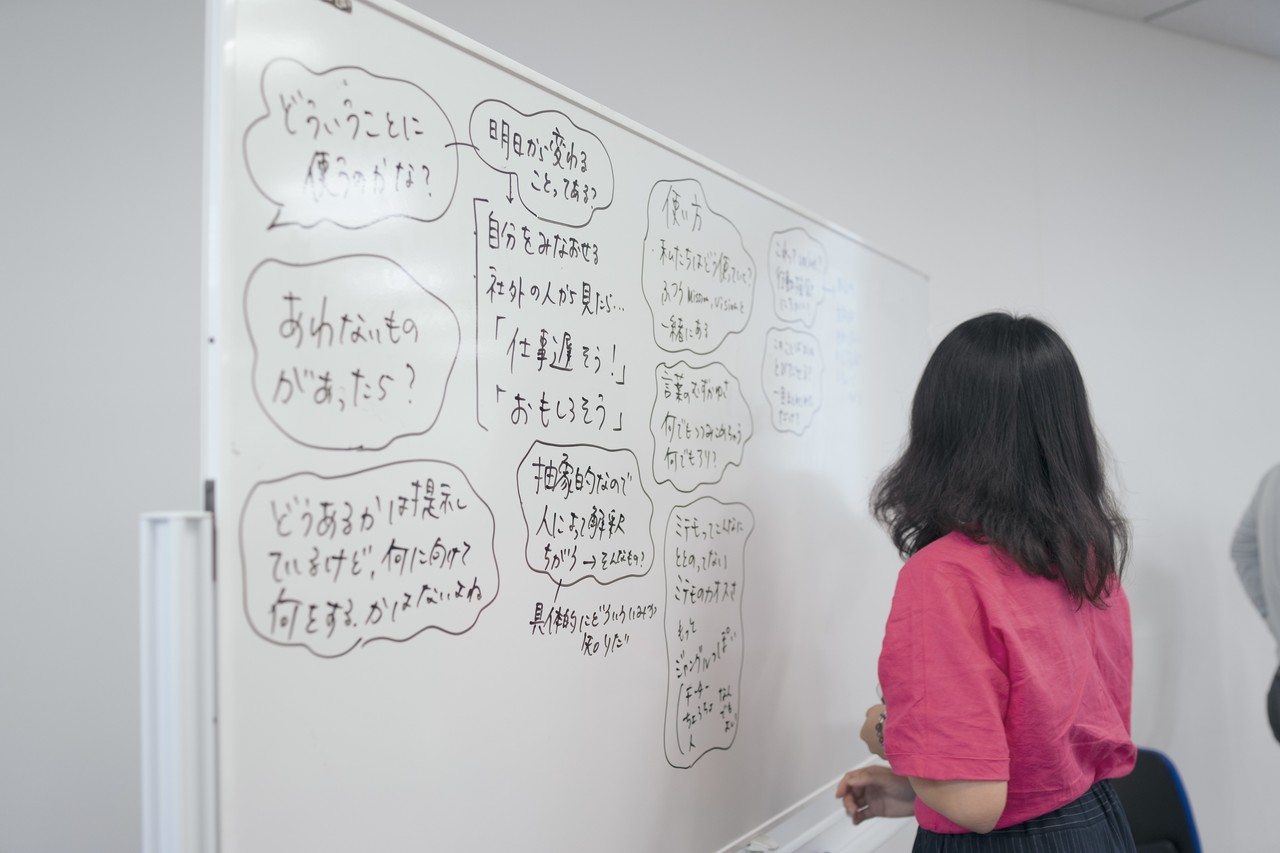 どういうことに
使うのかな?
明日から変わる
ことってある?
自分をみなおせる
社外の人から見たら…
「仕事遅そう!」
「おもしろそう」
あわないもの
があったら?
どうあるかは提示し
ているけど、何に向けて
何をする.かはないよね
抽象的なので
人によって解釈
ちがう→そんなもの?
具体的にどういういみか
知りたい
使い方
・私たちはどう使っていく?
ふつうMission, Visionと
一緒にある
言葉のむずかしさ
何でもつつみこめちゃう
何でもアリ?
ミテモってこんなに
ととのってない
ミテモのカオスさ
もっと
ジャングルっぽい
人
これって